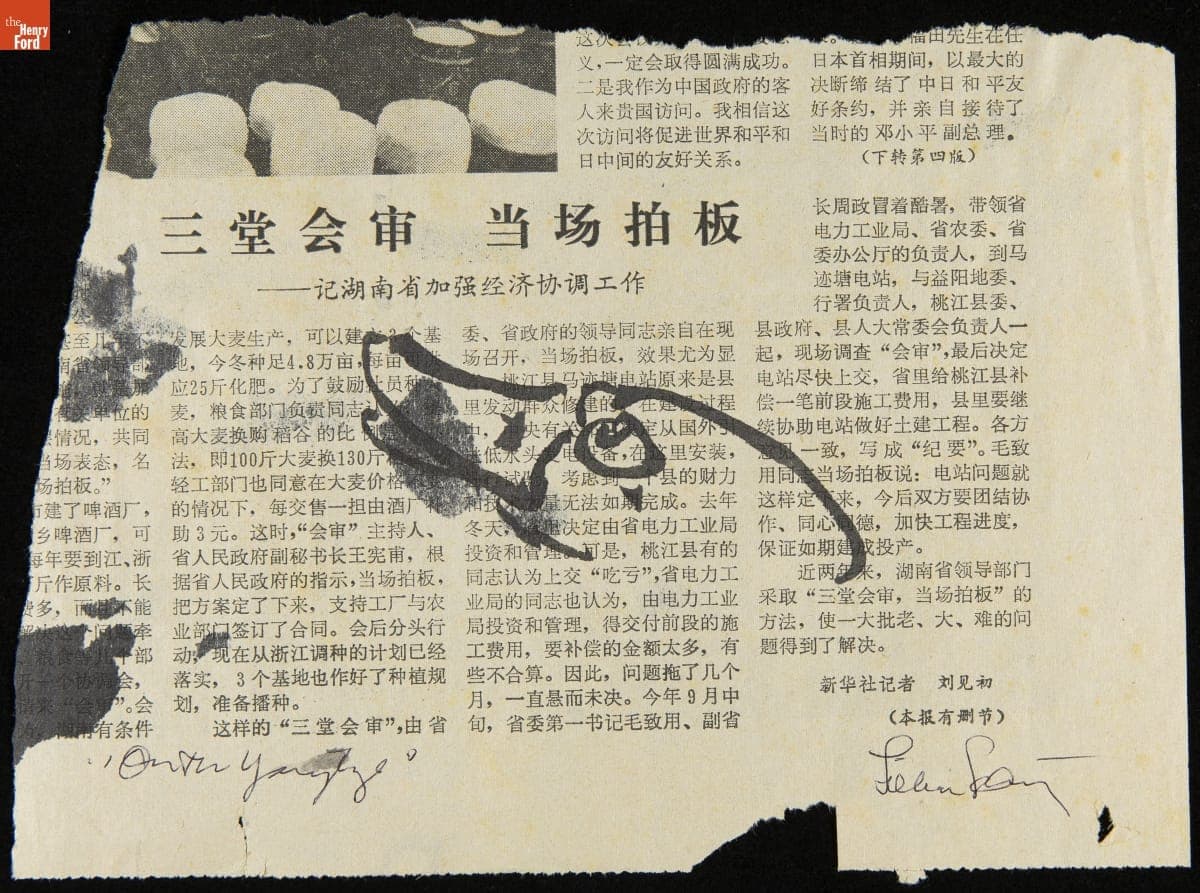 the
Henry
Ford
义，一定会取得圆满成功。
二是我作为中国政府的客
人来贵国访问。我相信这
次访问将促进世界和平和
日中间的友好关系。
福田先生在任
日本首相期间，以最大的
决断缔结了中日和平友
好条约，并亲自接待了
当时的邓小平副总理。
（下转第四版）
三堂会审 当场拍板
——记湖南省加强经济协调工作
单位的
情况，共同
当场表态，名
场拍板。”
建了啤酒厂，
乡啤酒厂，可
每年要到江、浙
斤作原料。长
费多，而 不能
这个问题牵
粮食等几个部
开一个协调会，
来“会审”。会
湖南有条件
发展大麦生产，可以建立3个基
地，今冬种足4.8万亩，每亩
应25斤化肥。为了鼓励社员种
麦，粮食部门负责同志
高大麦换购稻谷的比例
法，即100斤大麦换130斤
轻工部门也同意在大麦价格
的情况下，每交售一担由酒厂补
助3元。这时，“会审”主持人、
省人民政府副秘书长王宪甫，根
据省人民政府的指示，当场拍板，
把方案定了下来，支持工厂与农
业部门签订了合同。会后分头行
动，现在从浙江调种的计划已经
落实，3个基地也作好了种植规
划，准备播种。
这样的“三堂会审”，由省
委、省政府的领导同志亲自在现
场召开，当场拍板，效果尤为显
桃江县马迹塘电站原来是县
里发动群众修建的。在建设过程
中，中央有关 决定从国外引
进低水头 电设备，在这里安装，
试 考虑到一个县的财力
和技术力量无法如期完成。去年
冬天， 决定由省电力工业局
投资和管理。可是，桃江县有的
同志认为上交“吃亏”，省电力工
业局的同志也认为，由电力工业
局投资和管理，得交付前段的施
工费用，要补偿的金额太多，有
些不合算。因此，问题拖了几个
月，一直悬而未决。今年9月中
旬，省委第一书记毛致用、副省
长周政冒着酷暑，带领省
电力工业局、省农委、省
委办公厅的负责人，到马
迹塘电站，与益阳地委、
行署负责人，桃江县委、
县政府、县人大常委会负责人一
起，现场调查“会审”，最后决定
电站尽快上交，省里给桃江县补
偿一笔前段施工费用，县里要继
续协助电站做好土建工程。各方
意见一致，写成“纪要”。毛致
用同志当场拍板说：电站问题就
这样定下来，今后双方要团结协
作、同心同德，加快工程进度，
保证如期建成投产。
近两年来，湖南省领导部门
采取“三堂会审，当场拍板”的
方法，使一大批老、大、难的问
题得到了解决。
新华社记者 刘见初
（本报有删节）
"On the Yangtze"